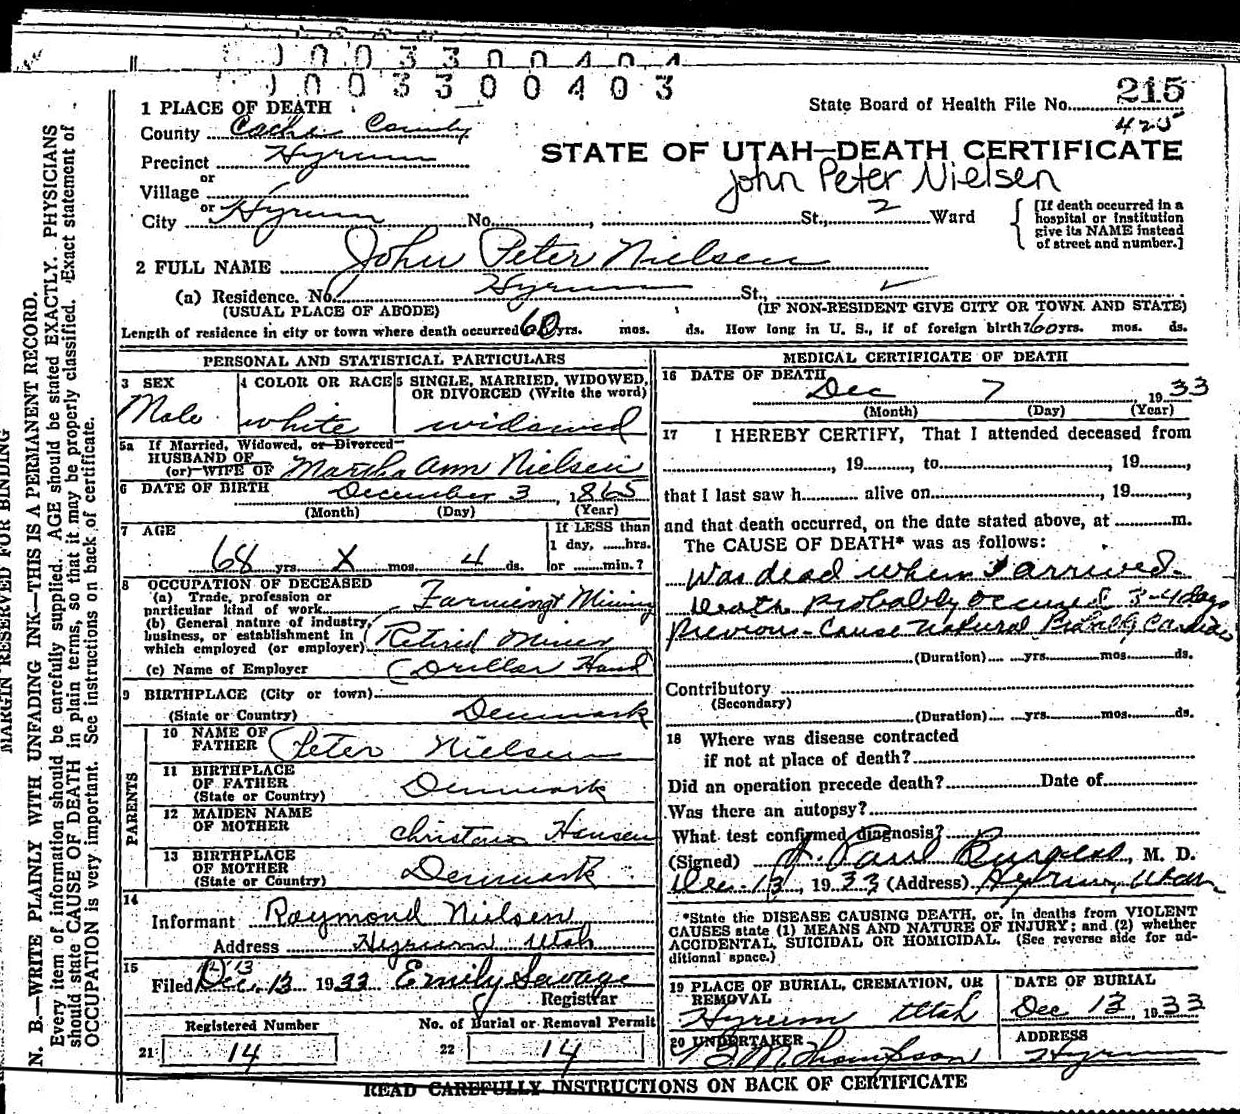 0003300404
0003300403
1 PLACE OF DEATH
State Board of Health File No. 215
425
County Cache County
STATE OF UTAH—DEATH CERTIFICATE
Precinct Hyrum
John Peter Nielsen
or
Village
or
City Hyrum No. , St., 2 Ward
[If death occurred in a hospital or institution give its NAME instead of street and number.]
2 FULL NAME John Peter Nielsen
(a) Residence. No. Hyrum St.,
(USUAL PLACE OF ABODE) (IF NON-RESIDENT GIVE CITY OR TOWN AND STATE)
Length of residence in city or town where death occurred 60 yrs. mos. ds. How long in U. S., if of foreign birth? 60 yrs. mos. ds.
PERSONAL AND STATISTICAL PARTICULARS
3 SEX
Male
4 COLOR OR RACE
white
5 SINGLE, MARRIED, WIDOWED, OR DIVORCED (Write the word)
widowed
5a If Married, Widowed, or Divorced
HUSBAND OF
(or) WIFE OF Martha Ann Nielsen
6 DATE OF BIRTH December 3, 1865
(Month) (Day) (Year)
7 AGE
68 yrs. X mos. 4 ds.
If LESS than
1 day, ......hrs.
or ......min.?
8 OCCUPATION OF DECEASED
(a) Trade, profession or
particular kind of work Farming & Mining
(b) General nature of industry,
business, or establishment in
which employed (or employer) Retired Miner
(c) Name of Employer Driller Hand
9 BIRTHPLACE (City or town)
(State or Country) Denmark
PARENTS
10 NAME OF
FATHER Peter Nielsen
11 BIRTHPLACE
OF FATHER
(State or Country) Denmark
12 MAIDEN NAME
OF MOTHER Hansen
13 BIRTHPLACE
OF MOTHER
(State or Country) Denmark
14
Informant Raymond Nielsen
Address Hyrum Utah
15 12/13
Filed Dec. 13 1933 Emily Savage
Registrar
Registered Number
21 14
No. of Burial or Removal Permit
22 14
MEDICAL CERTIFICATE OF DEATH
16 DATE OF DEATH
Dec 7 1933
(Month) (Day) (Year)
17 I HEREBY CERTIFY, That I attended deceased from
, 19 , to , 19 ,
that I last saw h alive on , 19 ,
and that death occurred, on the date stated above, at m.
The CAUSE OF DEATH* was as follows:
Was dead when I arrived.
Death Probably occured 3-4 days
Previous-Cause Natural Probably Cardiac
(Duration) yrs. mos. ds.
Contributory
(Secondary)
(Duration) yrs. mos. ds.
18 Where was disease contracted
if not at place of death?
Did an operation precede death? Date of
Was there an autopsy?
What test confirmed diagnosis?
(Signed) J. Paul Burgess, M. D.
Dec. 13, 1933 (Address) Hyrum, Utah
*State the DISEASE CAUSING DEATH, or, in deaths from VIOLENT
CAUSES state (1) MEANS AND NATURE OF INJURY; and (2) whether
ACCIDENTAL, SUICIDAL OR HOMICIDAL. (See reverse side for ad-
ditional space.)
19 PLACE OF BURIAL, CREMATION, OR
REMOVAL
Hyrum Utah
DATE OF BURIAL
Dec 13, 1933
20 UNDERTAKER
Thompson
ADDRESS
Hyrum
READ CAREFULLY INSTRUCTIONS ON BACK OF CERTIFICATE
MARGIN RESERVED FOR BINDING
N. B.—WRITE PLAINLY WITH UNFADING INK—THIS IS A PERMANENT RECORD.
Every item of information should be carefully supplied. AGE should be stated EXACTLY. PHYSICIANS
should state CAUSE OF DEATH in plain terms, so that it may be properly classified. Exact statement of
OCCUPATION is very important. See instructions on back of certificate.